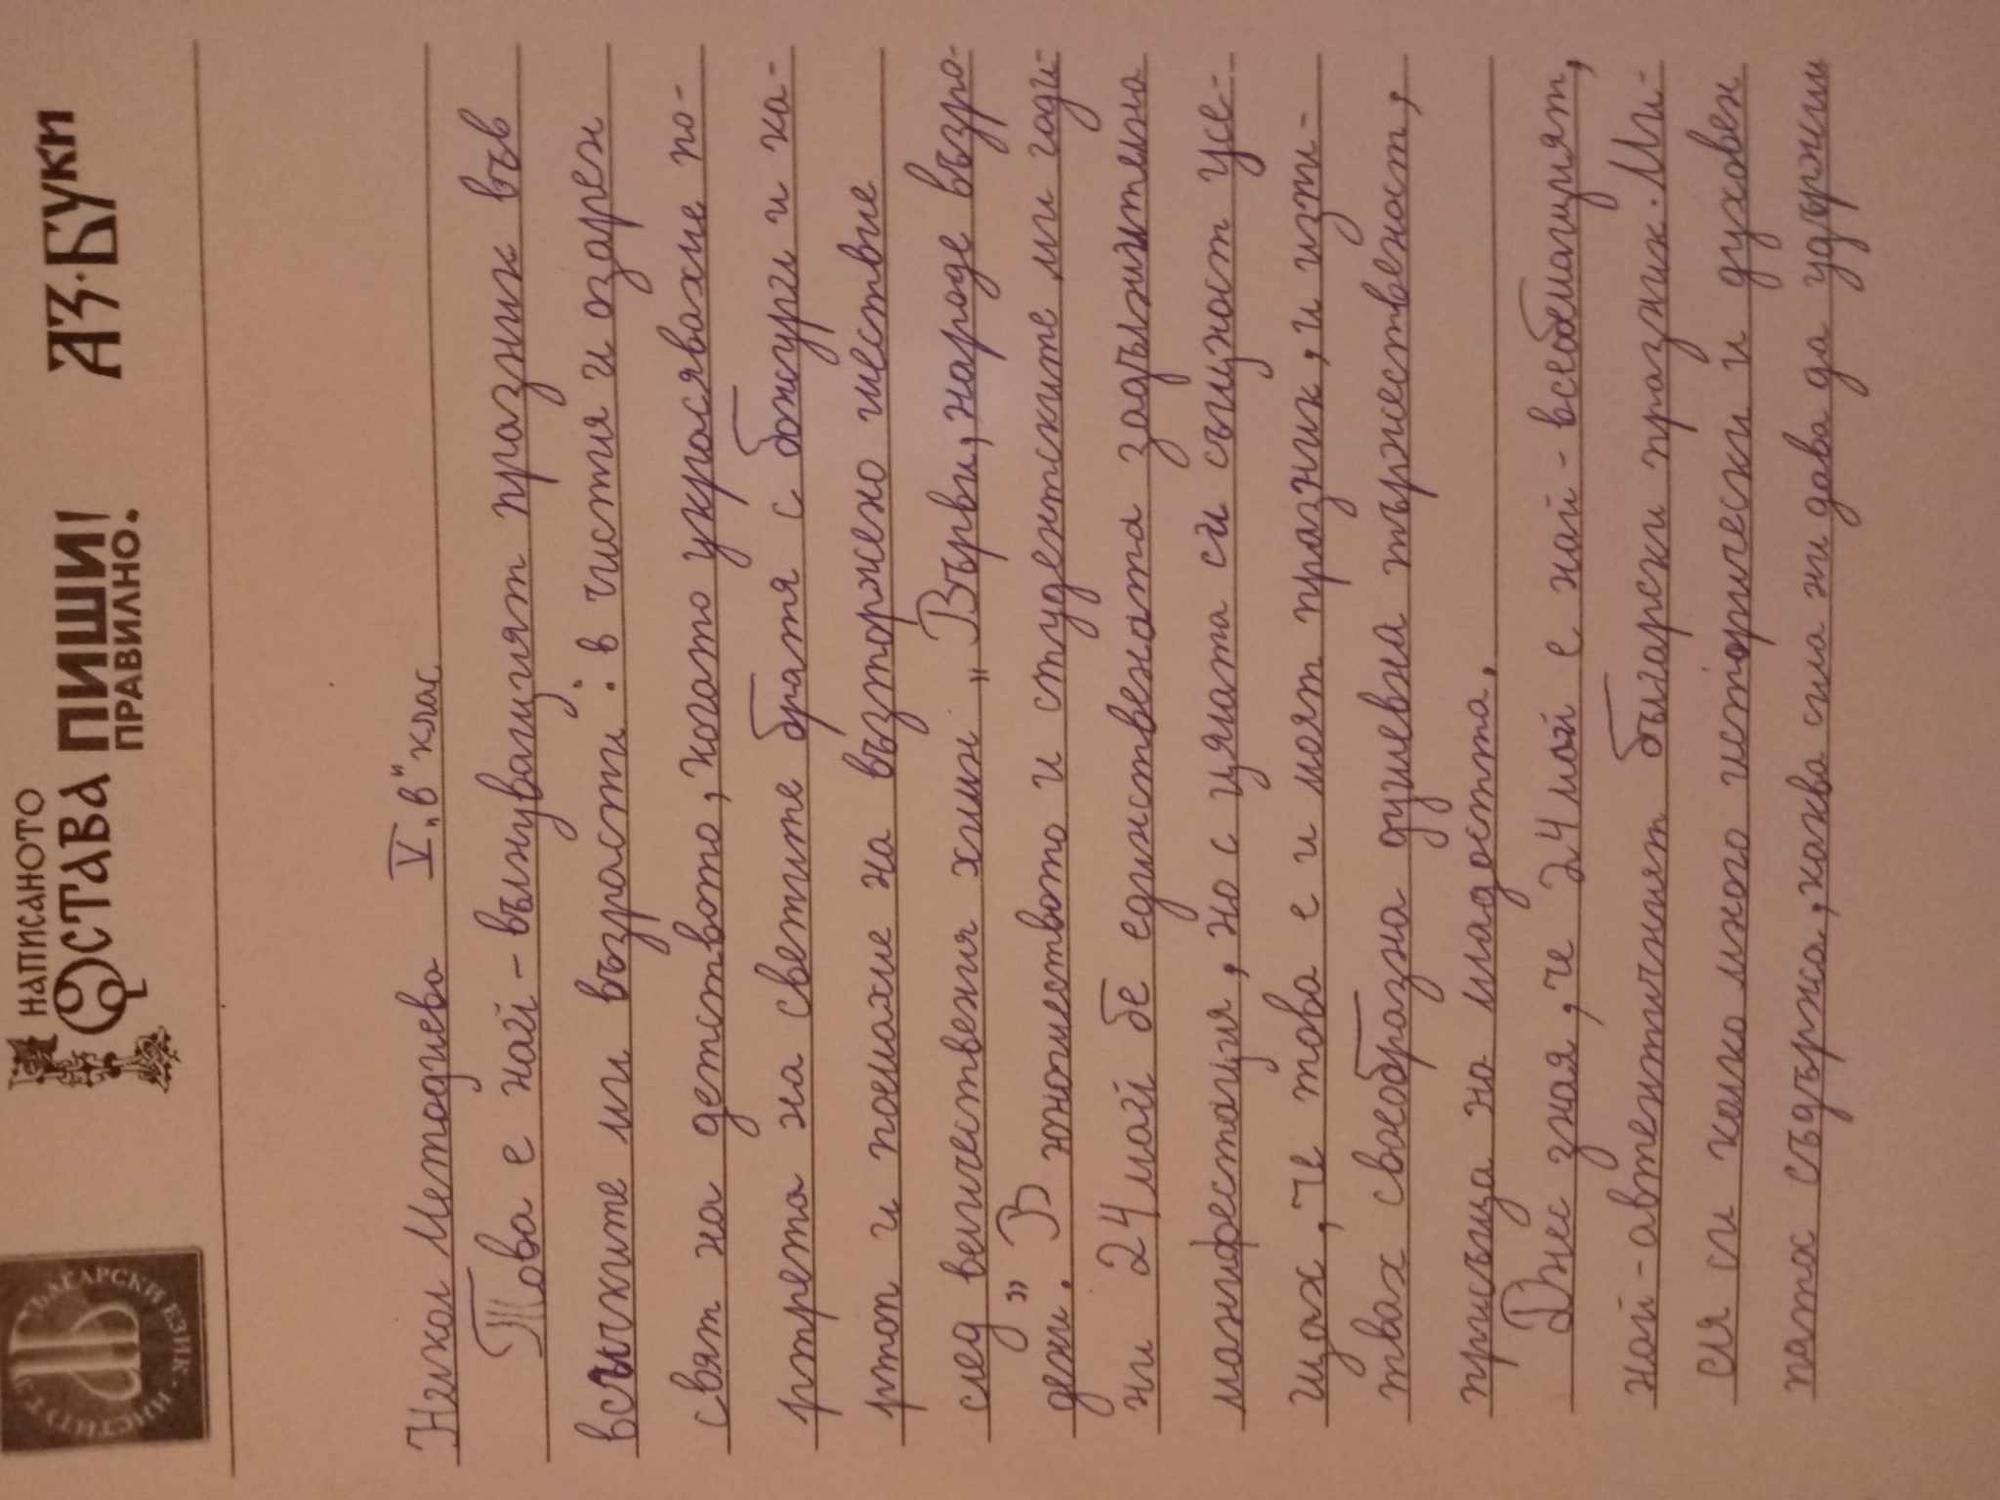 БЪЛГАРСКИ ЕЗИК · ИНСТИТУТ
НАПИСАНОТО
ОСТАВА ПИШИ!
ПРАВИЛНО.
АЗ·БУКИ
Никол Методиева V „в“ клас
Това е най-вълнуващият празник във
всъките ми възрасти: в чистия и озарен
свят на детството, когато украсявахме по-
ртрета на светите братя с божури и ка-
ртот и поемахме на възторжено шествие
след величествения химн „Върви, народе възро-
дени.” В юношеството и студентските ми годи-
ни 24 май бе единствената задължителна
манифестация, но с цялата си същност усе-
щах, че това е и моят празник, и изпи-
твах своеобразна душевна тържественост,
присъща на младостта.
Днес зная, че 24 май е най-всеобемащият,
най-автентичният български празник. Ми-
сля си колко много исторически и духовен
патос съдържа, каква сила ни дава да удържим